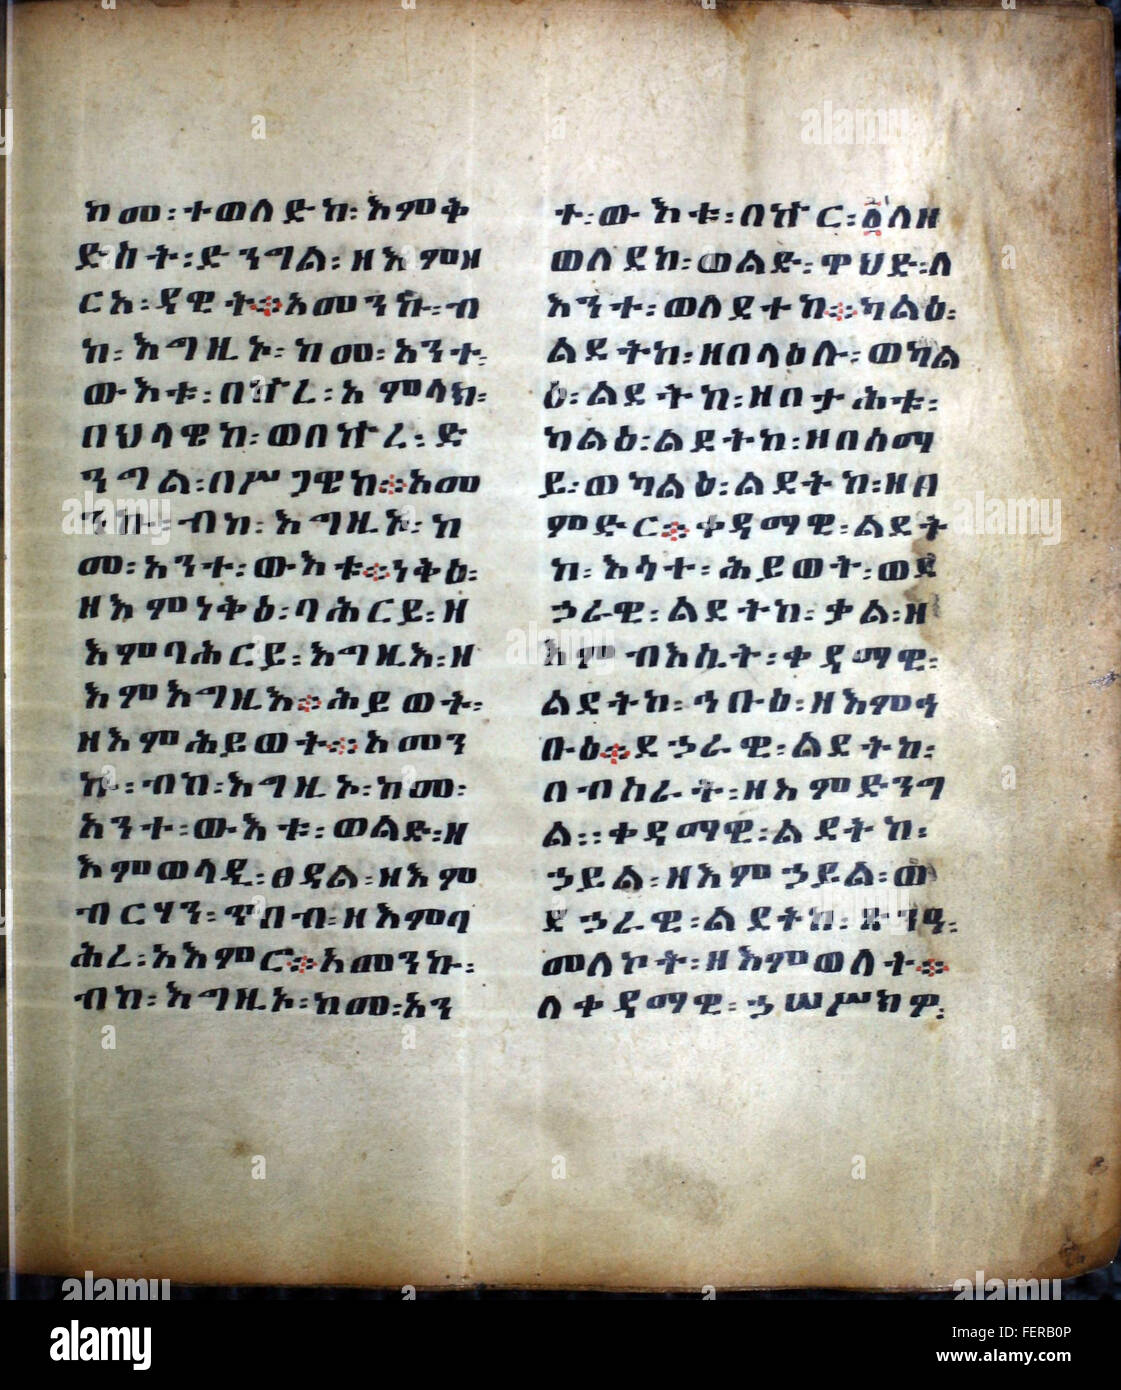 ከመ፡ተወለድከ፡እምቅ
ድስት፡ድንግል፡ዘእምዘ
ርአ፡ዳዊት፨አመንኩ፡ብ
ከ፡እግዚኦ፡ከመ፡አንተ፡
ውእቱ፡በኵረ፡አምላክ፡
በህላዌከ፡ወበኵረ፡ድ
ንግል፡በሥጋዌከ፨አመ
ንኩ፡ብከ፡እግዚኦ፡ከ
መ፡አንተ፡ውእቱ፨ነቅዕ፡
ዘእምነቅዕ፡ባሕርይ፡ዘ
እምባሕርይ፡እግዚእ፡ዘ
እምእግዚእ፨ሕይወት፡
ዘእምሕይወት፨አመን
ኩ፡ብከ፡እግዚኦ፡ከመ፡
አንተ፡ውእቱ፡ወልድ፡ዘ
እምወላዲ፡ፀዳል፡ዘእም
ብርሃን፡ጥበብ፡ዘእምባ
ሕረ፡አእምሮ፨አመንኩ፡
ብከ፡እግዚኦ፡ከመ፡አን
ተ፡ውእቱ፡በኵር፡፩ለዘ
ወለደከ፡ወልድ፡ዋህድ፡ለ
እንተ፡ወለደተከ፨ካልዕ፡
ልደትከ፡ዘበላዕሉ፡ወካል
ዕ፡ልደትከ፡ዘበታሕቱ፡
ካልዕ፡ልደትከ፡ዘበሰማ
ይ፡ወካልዕ፡ልደትከ፡ዘበ
ምድር፨ቀዳማዊ፡ልደት
ከ፡እሳተ፡ሕይወት፡ወደ
ኃራዊ፡ልደትከ፡ቃል፡ዘ
እምብእሲት፡ቀዳማዊ፡
ልደትከ፡ኀቡዕ፡ዘእምኀ
ቡዕ፨ደኃራዊ፡ልደትከ፡
በብስራት፡ዘእምድንግ
ል፡፡ቀዳማዊ፡ልደትከ፡
ኃይል፡ዘእምኃይል፡ወ
ደኃራዊ፡ልደትከ፡ጽንዓ፡
መለኮት፡ዘእምወለት፨
ለቀዳማዊ፡ኃሠሥክዎ፡